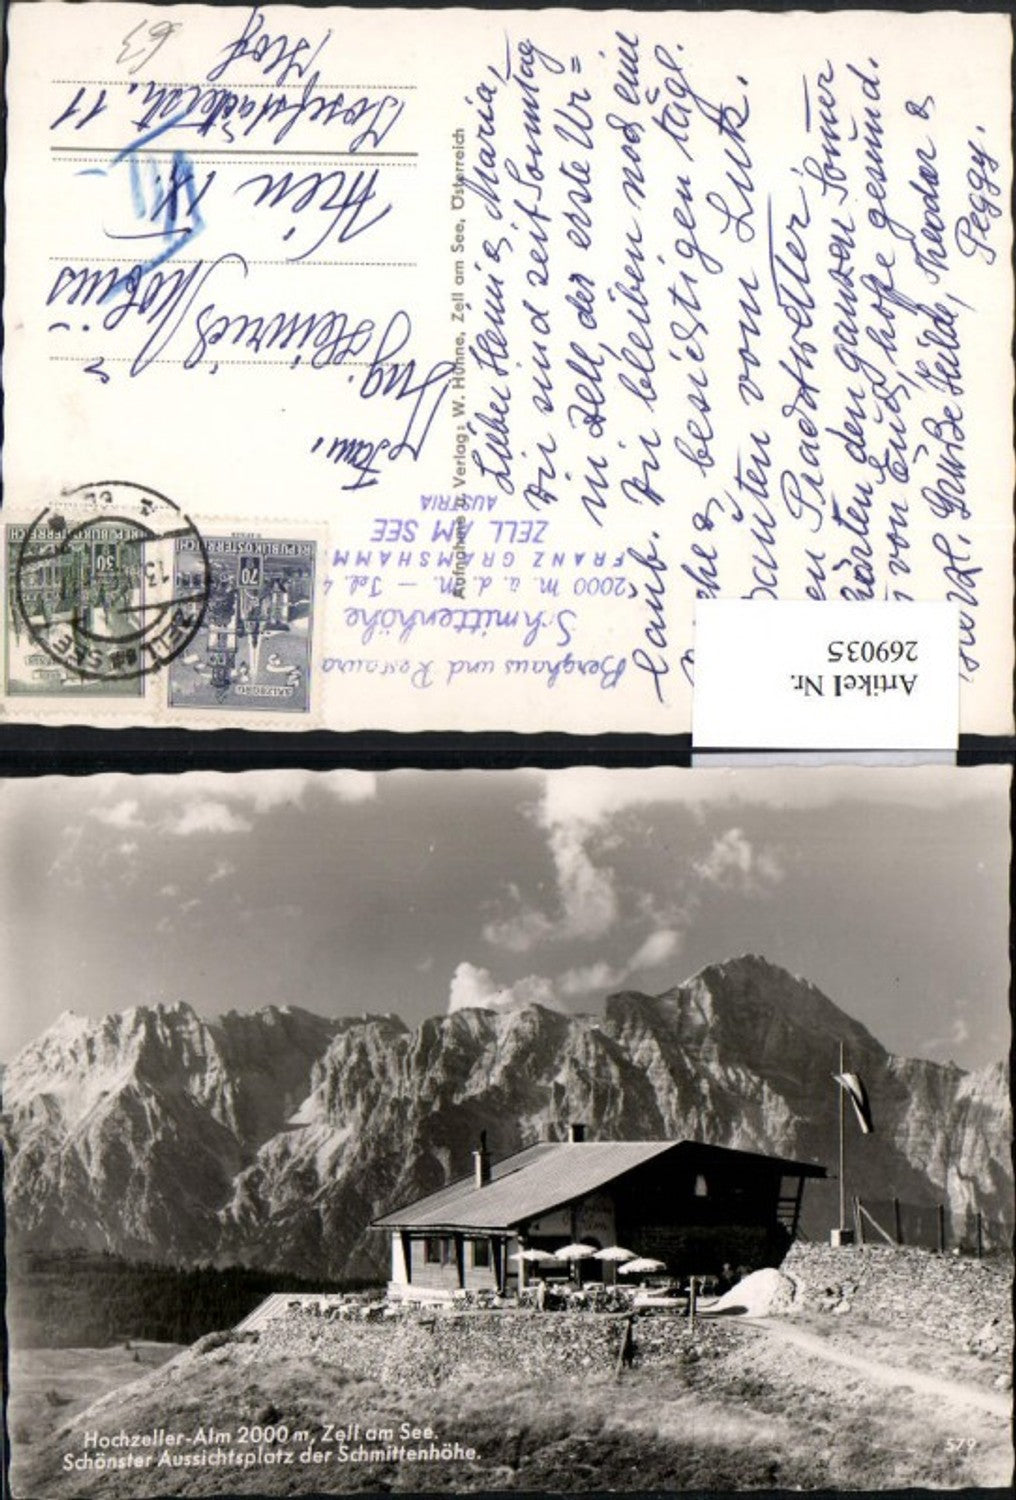 63
Fam.
Ing. Heinrich Möbius
Wien
Josefstädterstr. 11
Lieber Heini & Maria,
Wir sind seit Sonntag
in Zell, der erste Ur=
laub. Wir bleiben noch eine
besichtigen tägl.
Bauten von Luk.
en Prachtwetter,
hörten den ganzen Sommer
von Euch, hoffe gesund.
Herzl. Grüße Hilde, Theodor &
Peggy.
Aufnahme u. Verlag: W. Hühne, Zell am See, Österreich
Berghaus und Restaura
Schmittenhöhe
2000 m. ü. d. M. — Tel. 4
FRANZ GRAMSHAMM
ZELL AM SEE
AUSTRIA
REPUBLIK ÖSTERREICH
50
REPUBLIK ÖSTERREICH
70
SALZBURG
ZELL am SEE
13
Artikel Nr.
269035
Hochzeller-Alm 2000 m, Zell am See.
Schönster Aussichtsplatz der Schmittenhöhe.
579